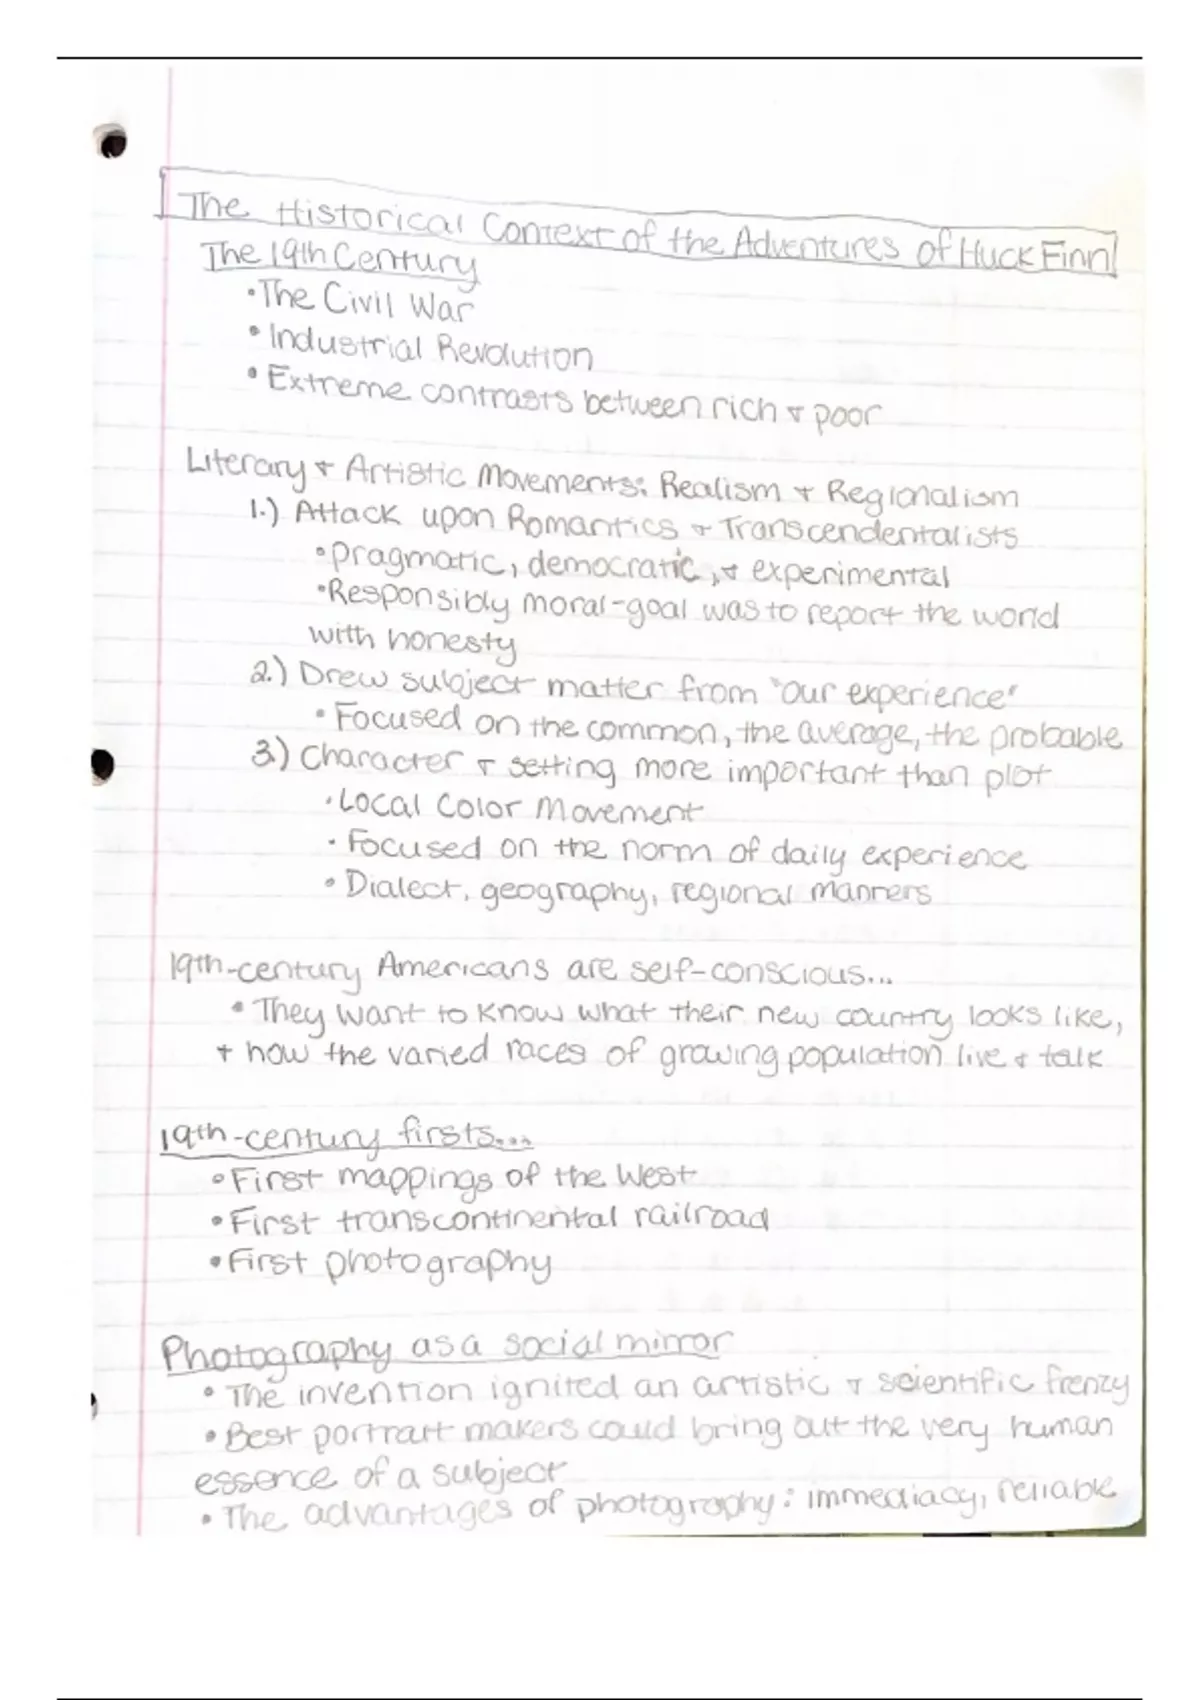 The Historical Context of the Adventures of Huck Finn
The 19th Century
• The Civil War
• Industrial Revolution
• Extreme contrasts between rich + poor
Literary + Artistic Movements: Realism + Regionalism
1.) Attack upon Romantics + Transcendentalists
• Pragmatic, democratic, + experimental
• Responsibly moral-goal was to report the world
with honesty
2.) Drew subject matter from "our experience"
• Focused on the common, the average, the probable
3.) Character + setting more important than plot
• Local Color Movement
• Focused on the norm of daily experience
• Dialect, geography, regional manners
19th-century Americans are self-conscious...
• They want to know what their new country looks like,
+ how the varied races of growing population live + talk
19th-century firsts...
• First mappings of the West
• First transcontinental railroad
• First photography
Photography as a social mirror
• The invention ignited an artistic + scientific frenzy
• Best portrait makers could bring out the very human
essence of a subject
• The advantages of photography: immediacy, reliable